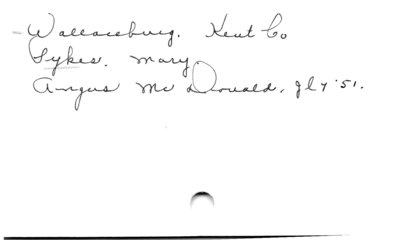 Wallaceburg. Kent Co
Sykes. Mary.
Angus McDonald, Jly '51.